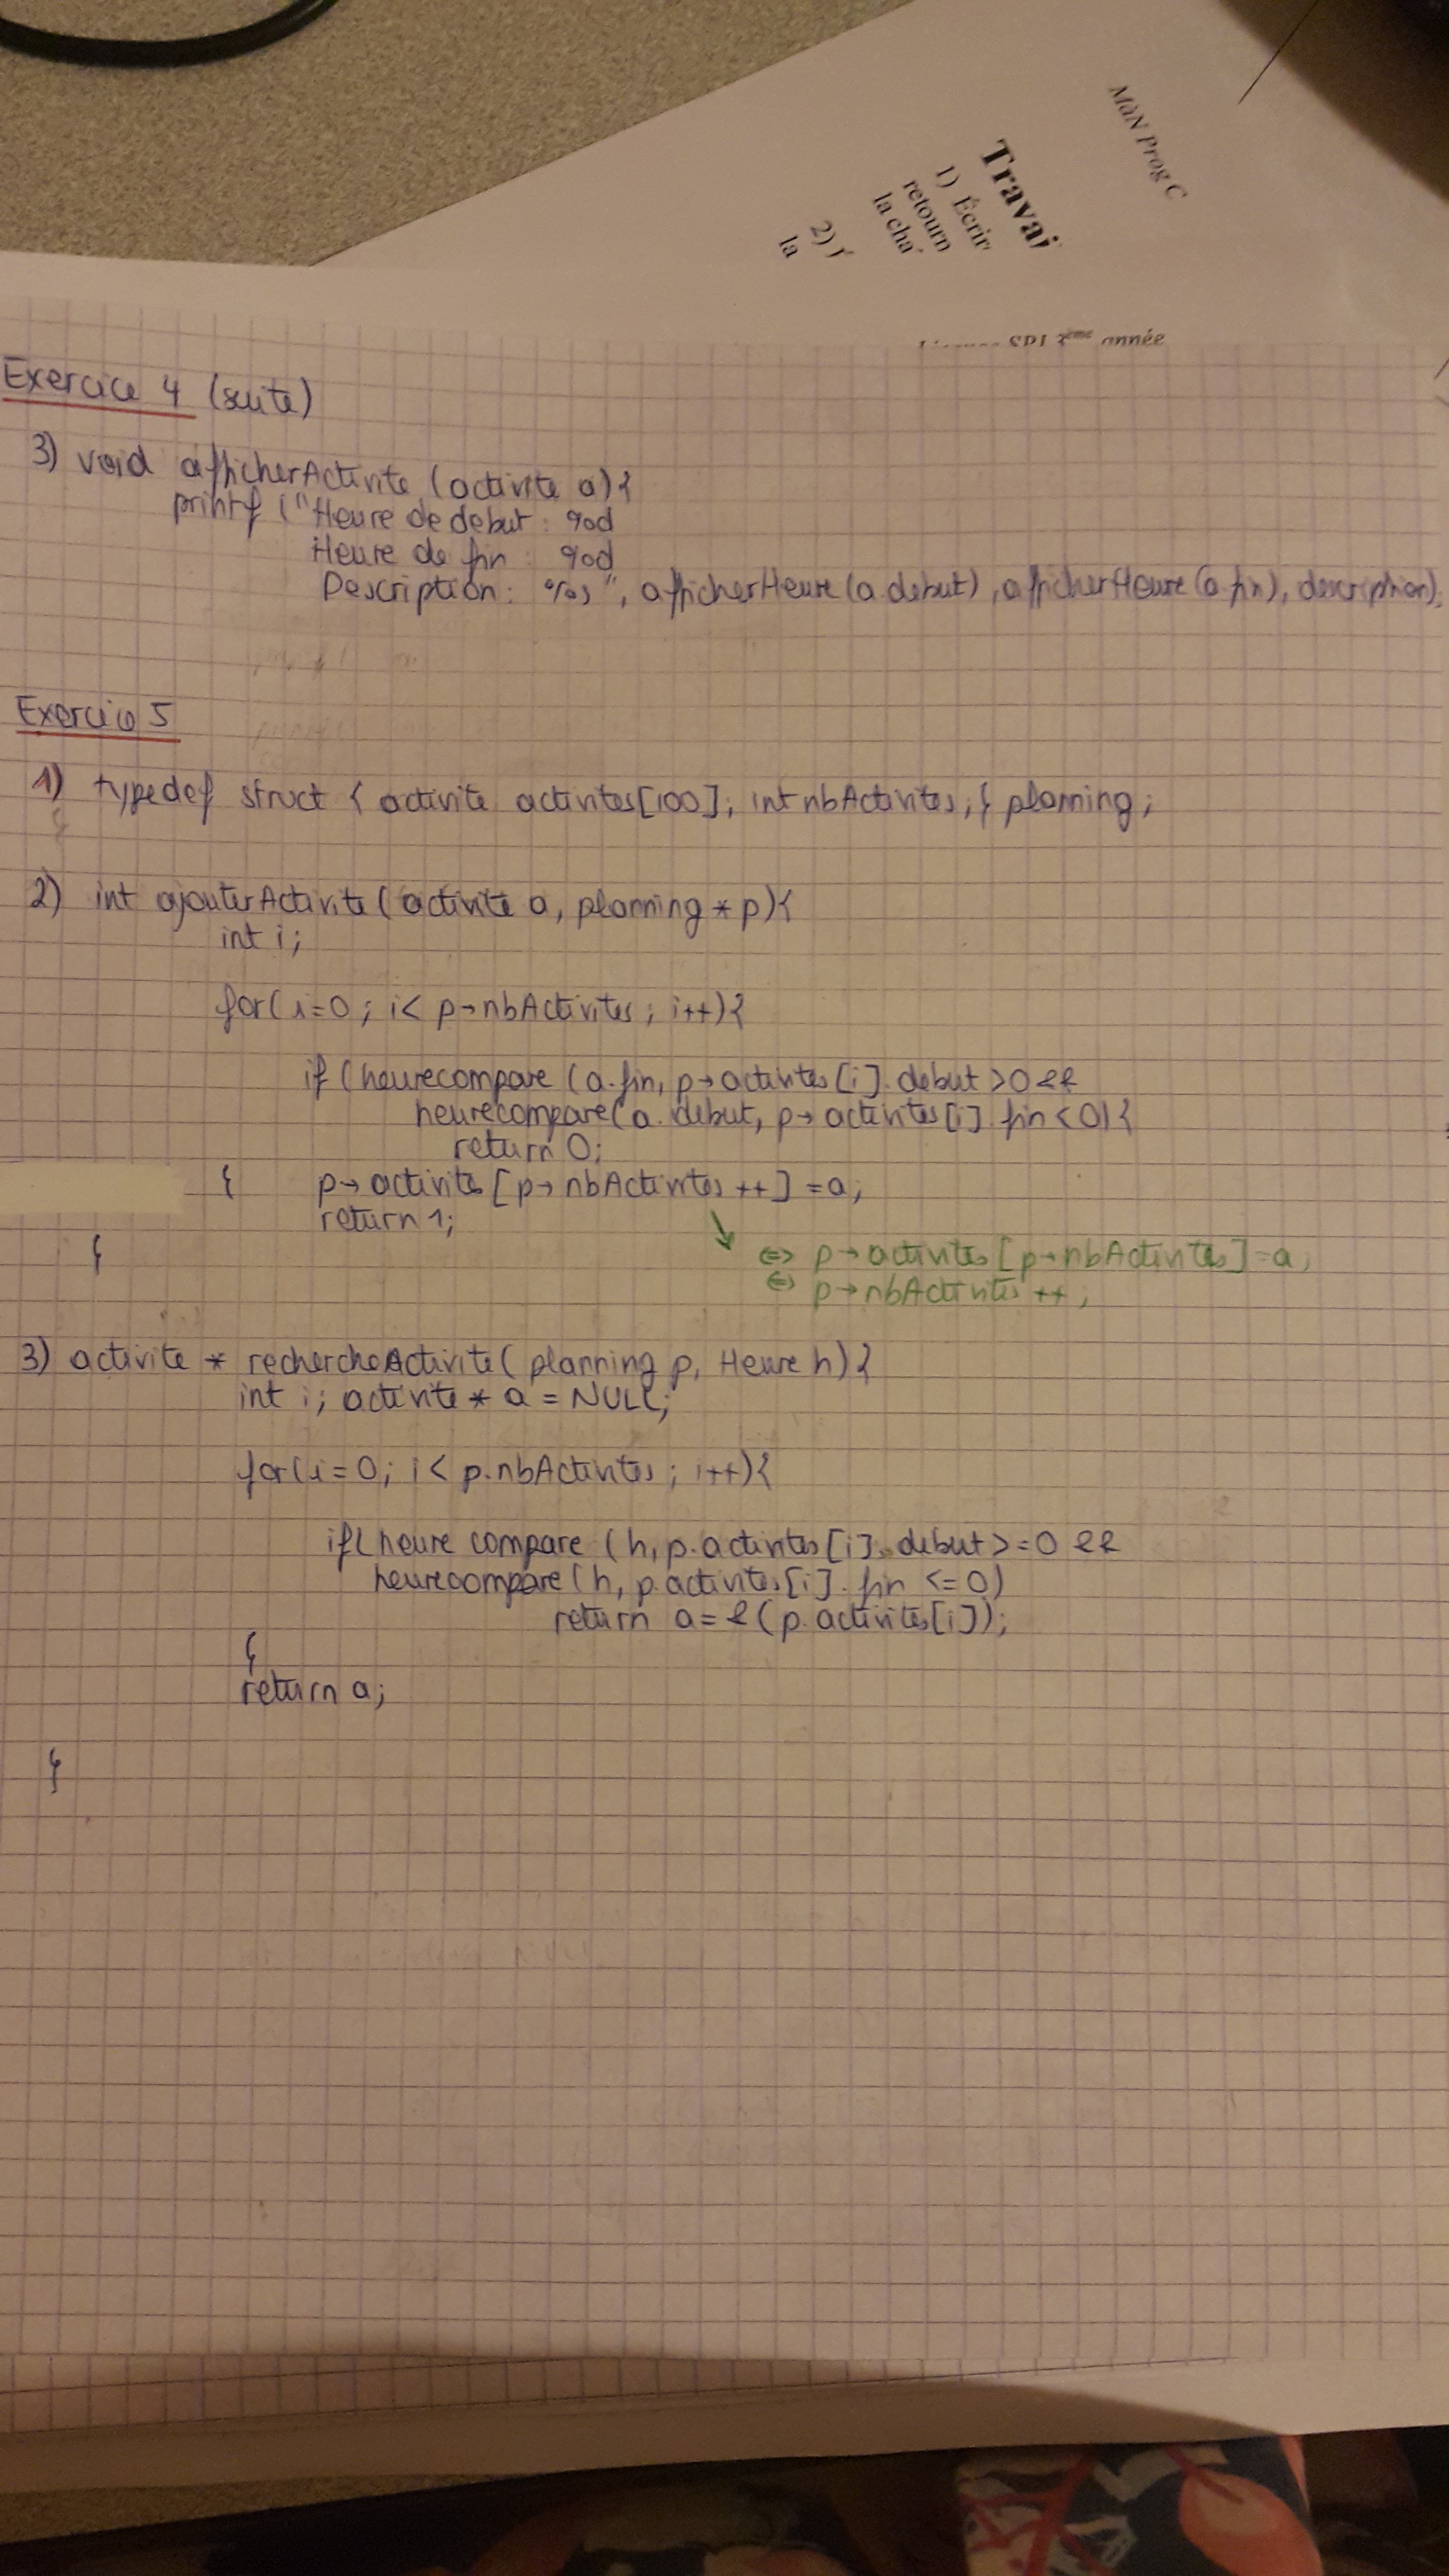 MàN Prog C
Travai
1) Écrir
retourn
la cha
2)
la
SPI 3ème année
Exercice 4 (suite)
3) void afficherActivite (activite a){
printf ("Heure de debut : %d
Heure de fin : %d
Description : %s", afficherHeure (a.debut), afficherHeure (a.fin), description);
Exercice 5
1) typedef struct { activite activites[100]; int nbActivites; } planning;
2) int ajouterActivite ( activite a, planning * p){
int i;
for( i=0 ; i< p→nbActivites ; i++){
if (heurecompare (a.fin, p→activites[i].debut >0 &&
heurecompare(a.debut, p→activites[i].fin <0){
return 0;
} p→activites[p→nbActivites ++] = a;
return 1;
}
⇔ p→activites[p→nbActivites] = a;
⇔ p→nbActivites ++;
3) activite * rechercheActivite( planning p, Heure h){
int i; activite * a = NULL;
for(i=0; i< p.nbActivites ; i++){
if( heure compare (h, p.activites[i].debut >=0 &&
heurecompare(h, p.activites[i].fin <=0)
return a=&(p.activites[i]);
}
return a;
}